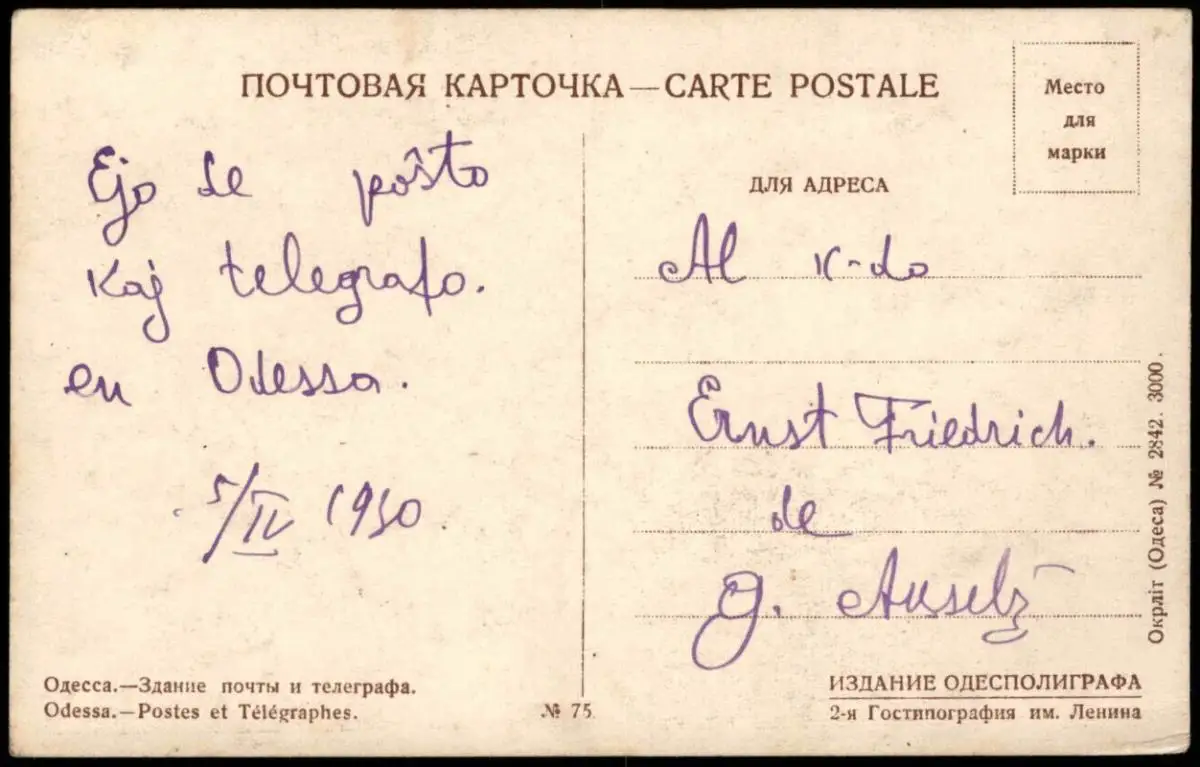 ПОЧТОВАЯ КАРТОЧКА — CARTE POSTALE
Место
для
марки
Ejo de pôŝto
kaj telegrafo.
en Odessa.
5/IV 1930
ДЛЯ АДРЕСА
Al k-do
Ernst Friedrich.
de
g.
Окрліт (Одеса) № 2842. 3000.
Одесса.—Здание почты и телеграфа.
Odessa.—Postes et Télégraphes.
№ 75
ИЗДАНИЕ ОДЕСПОЛИГРАФА
2-я Гостипография им. Ленина